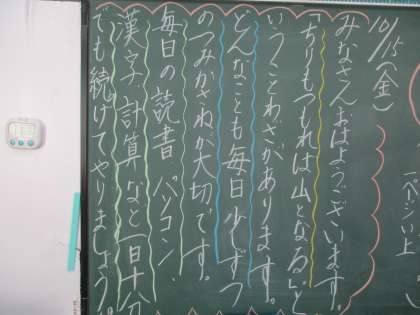 10/15(金)
みなさんおはようございます。
「ちりもつもれば山となる」と
いうことわざがあります。
どんなことも毎日少しずつ
のつみかさねが大切です。
毎日の読書、パソコン、
漢字、計算など一日十分
でも続けてやりましょう。